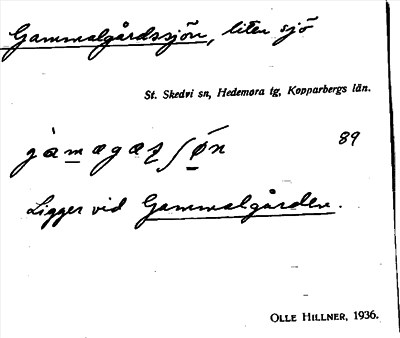 Gammalgårdssjön, liten sjö
St. Skedvi sn, Hedemora tg, Kopparbergs län.
89
Ligger vid Gammalgården.
OLLE HILLNER, 1936.